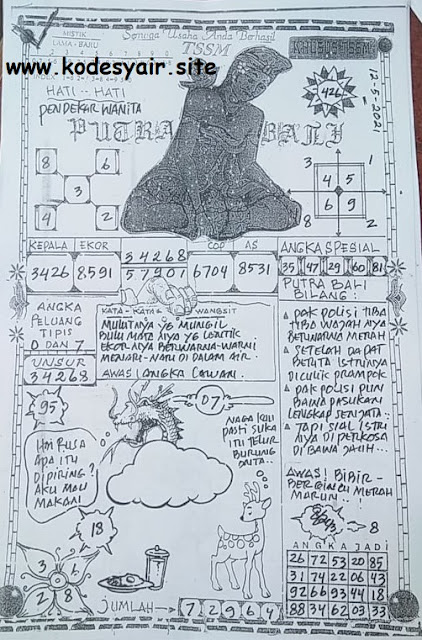 MISTIK
LAMA - BARU
Semoga Usaha Anda Berhasil
TSSM
www.kodesyair.site
HATI - HATI
PENDEKAR WANITA
PUTRA BALI
426
12-5-2021
8 6
3
4 2
3 1
4 5
6 9
8 2
KEPALA EKOR
3426 8591
34268
57901
COP AS
6704 8531
ANGKA SPESIAL
35 47 29 60 81
ANGKA
PELUANG
TIPIS
0 DAN 7
UNSUR
34268
KATA - KATA WANGSIT
MULUTNYA YG MUNGIL
BULU MATA NYA YG LENTIK
EKOR NYA BERWARNA-WARNI
MENARI-NARI DI DALAM AIR.
AWAS! ANGKA CAWAN.
PUTRA BALI
BILANG:
PAK POLISI TIBA
TIBA WAJAH NYA
BERWARNA MERAH
SETELAH DAPAT
BERITA ISTRINYA
DICULIK PERAMPOK
PAK POLISI PUN
BAWA PASUKAN
LENGKAP SENJATA
TAPI SIAL ISTRI
NYA DI PERKOSA
DI BAWA JAUH...
AWAS! BIBIR-
BERGINCU MERAH
MARUN..!
8
95
07
HAI RUSA
APA ITU
DIPIRING?
AKU MAU
MAKAN!
NAGA KULI
PASTI SUKA
ITU TELUR
BURUNG
ONTA..
18
3 6
2 8
JUMLAH → 7 2 9 6 4
ANGKA JADI
26 72 53 20 85
31 74 22 06 43
92 66 93 44 18
88 34 62 03 33